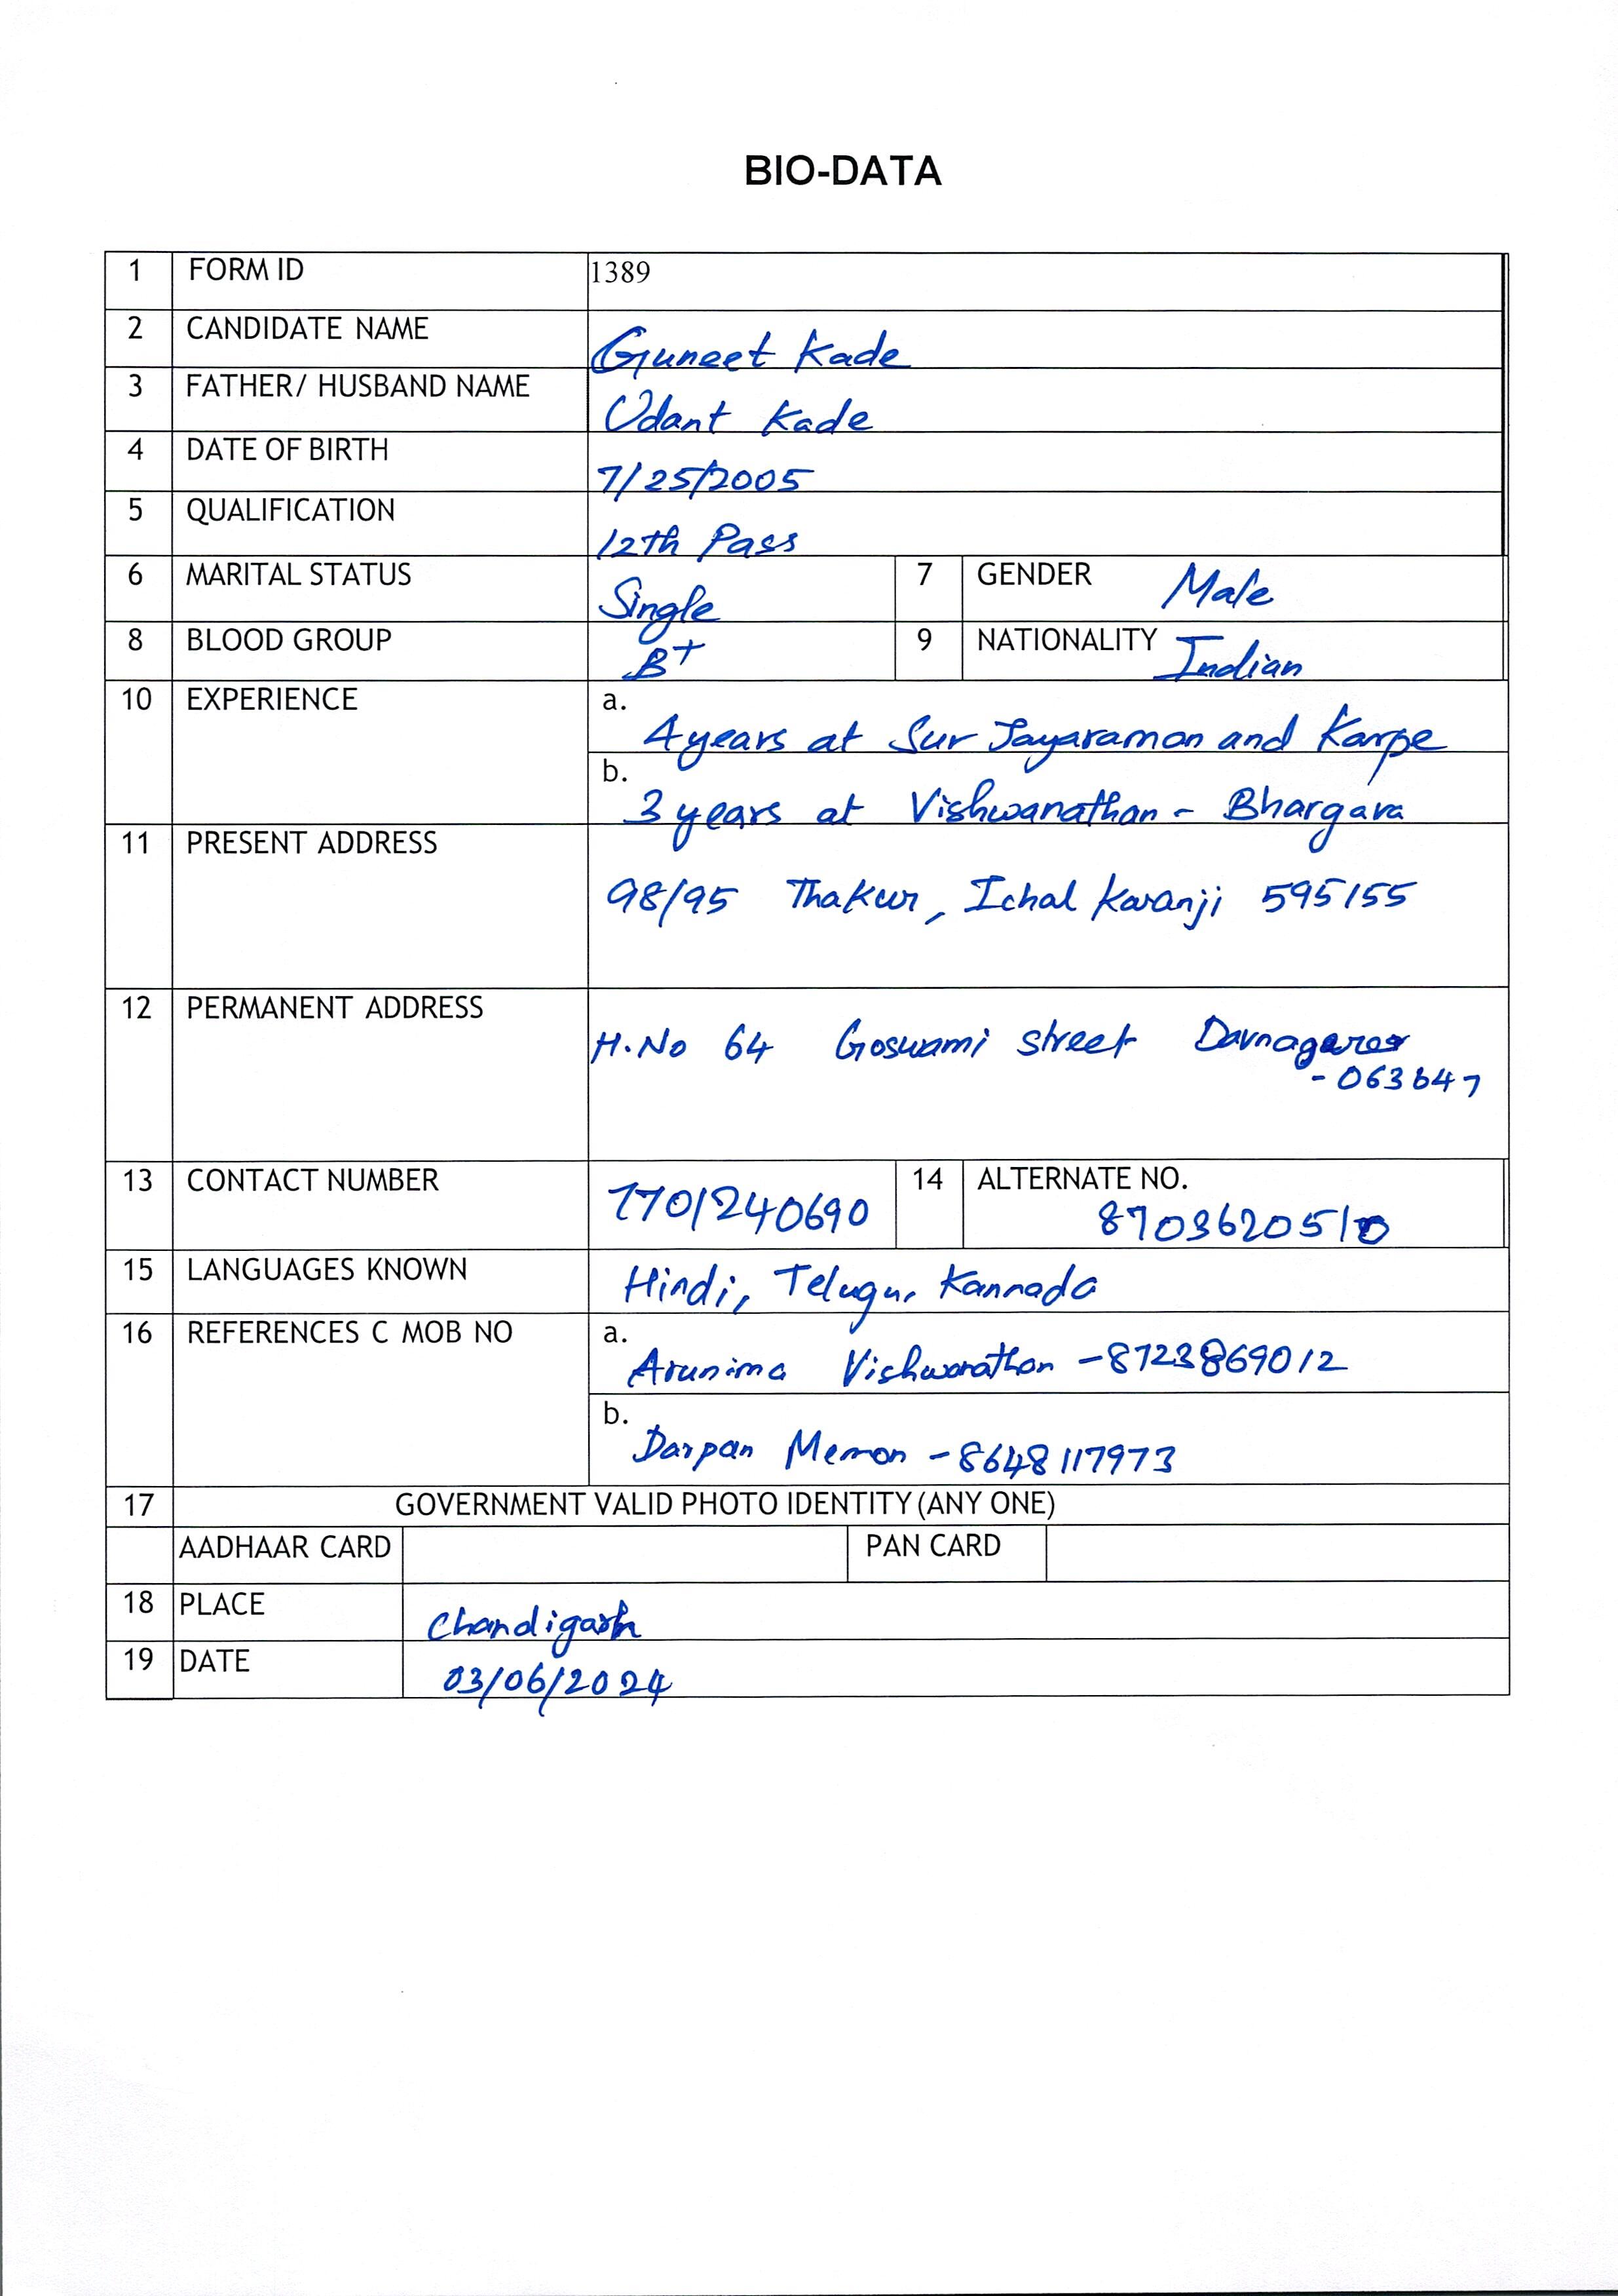 BIO-DATA
1 FORM ID 1389
2 CANDIDATE NAME Guneet Kade
3 FATHER/ HUSBAND NAME Udant Kade
4 DATE OF BIRTH 7/25/2005
5 QUALIFICATION 12th Pass
6 MARITAL STATUS Single 7 GENDER Male
8 BLOOD GROUP B+ 9 NATIONALITY Indian
10 EXPERIENCE a. 4 years at Sur Jayaraman and Karpe
b. 3 years at Vishwanathan - Bhargava
11 PRESENT ADDRESS
98/95 Thakur, Ichal Karanji 595155
12 PERMANENT ADDRESS
H.No 64 Goswami street
- 063647
13 CONTACT NUMBER 7701240690 14 ALTERNATE NO. 8703620510
15 LANGUAGES KNOWN Hindi, Telugu, Kannada
16 REFERENCES C MOB NO a. Arunima Vishwanathan - 8723869012
b. Darpan Memon - 8648117973
17 GOVERNMENT VALID PHOTO IDENTITY (ANY ONE)
AADHAAR CARD PAN CARD
18 PLACE Chandigarh
19 DATE 03/06/2024